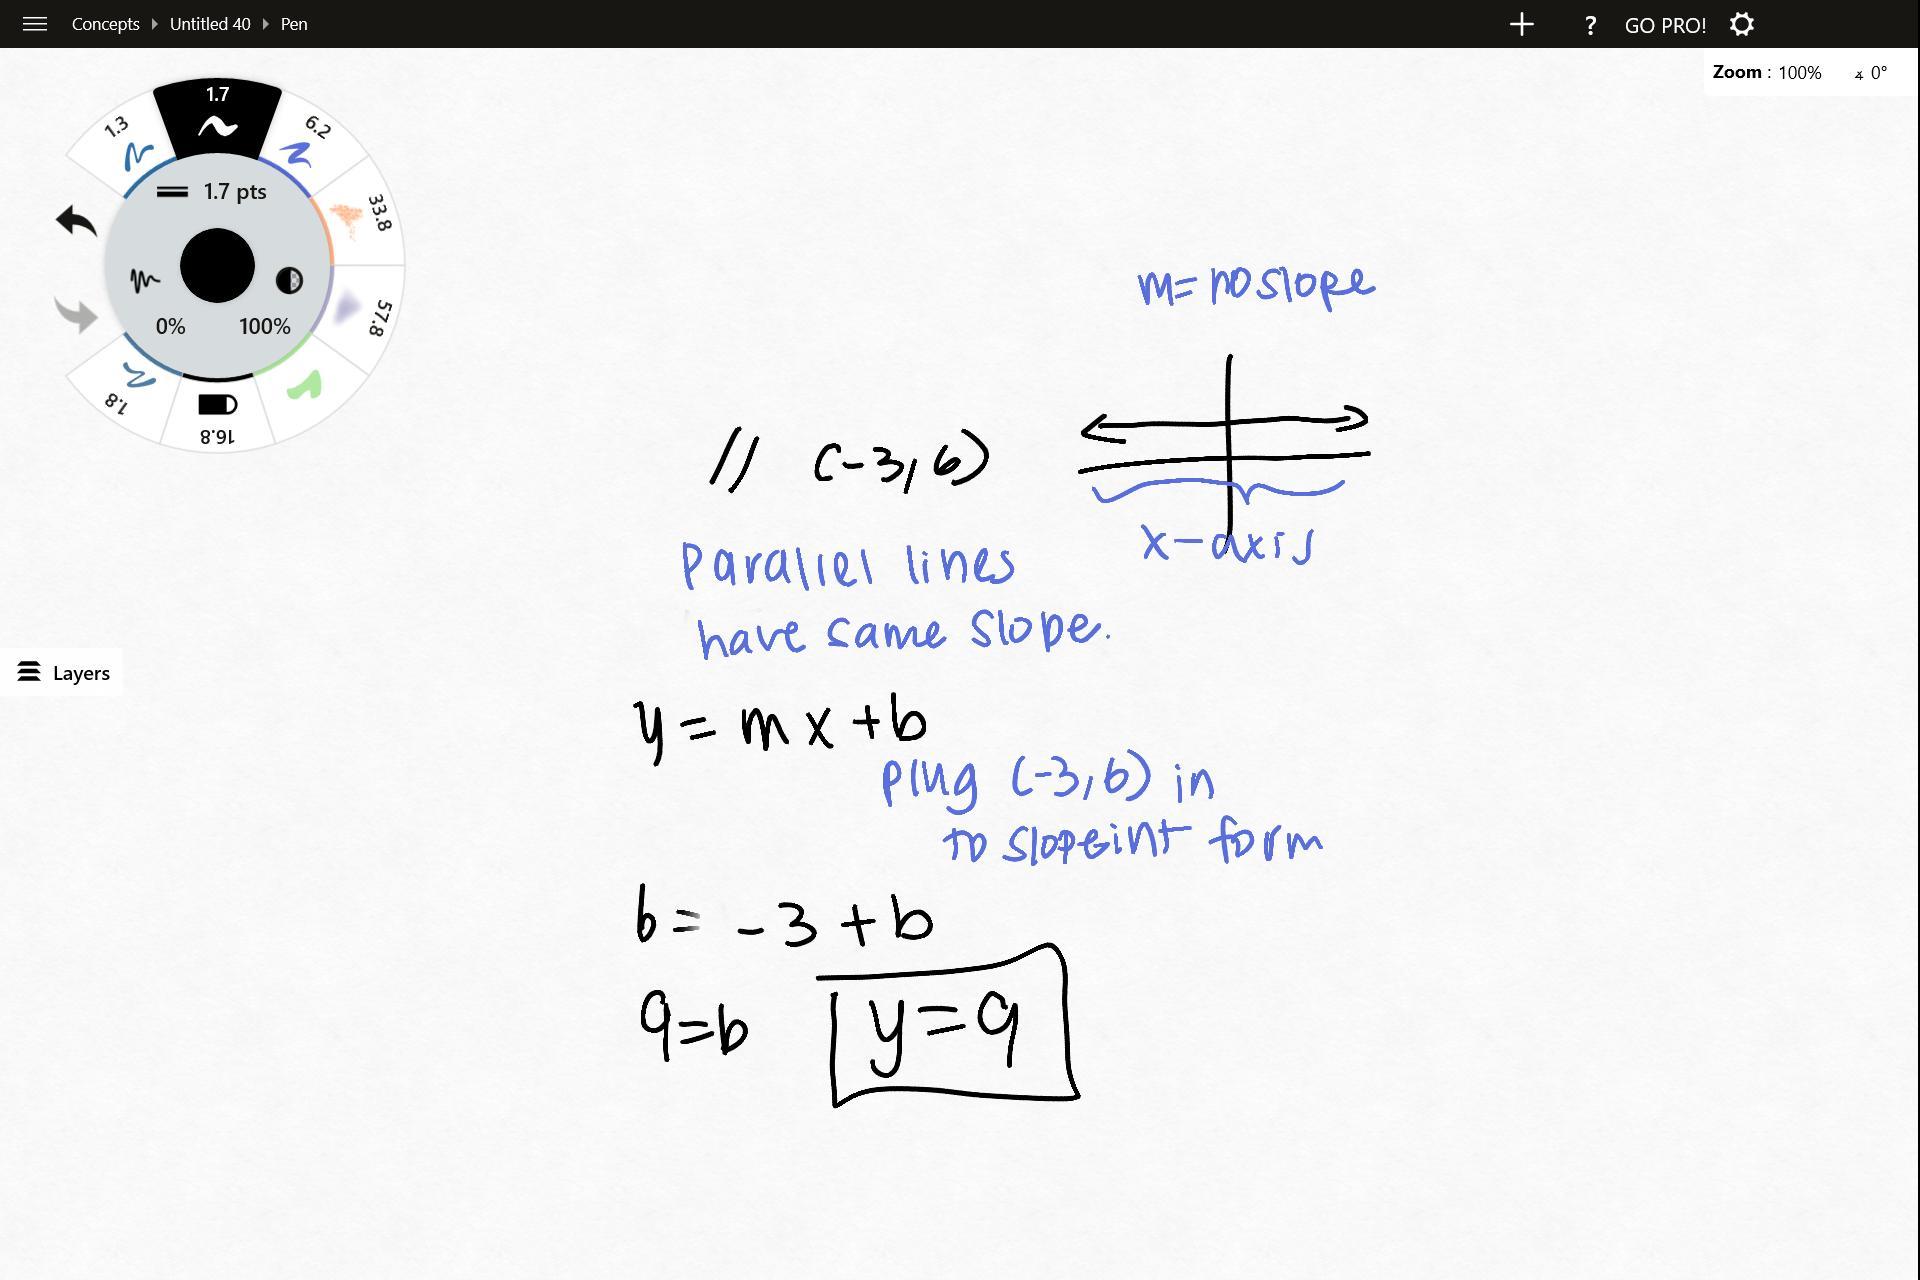 Concepts Untitled 40 Pen
? GO PRO!
Zoom : 100% 0°
1.7
1.3
6.2
1.7 pts
33.8
0% 100%
57.8
1.8
16.8
m= no slope
// (-3,6)
x-axis
Parallel lines
have same slope.
Layers
y = mx +b
plug (-3,6) in
to slopeint form
6 = -3 + b
9=b y=9